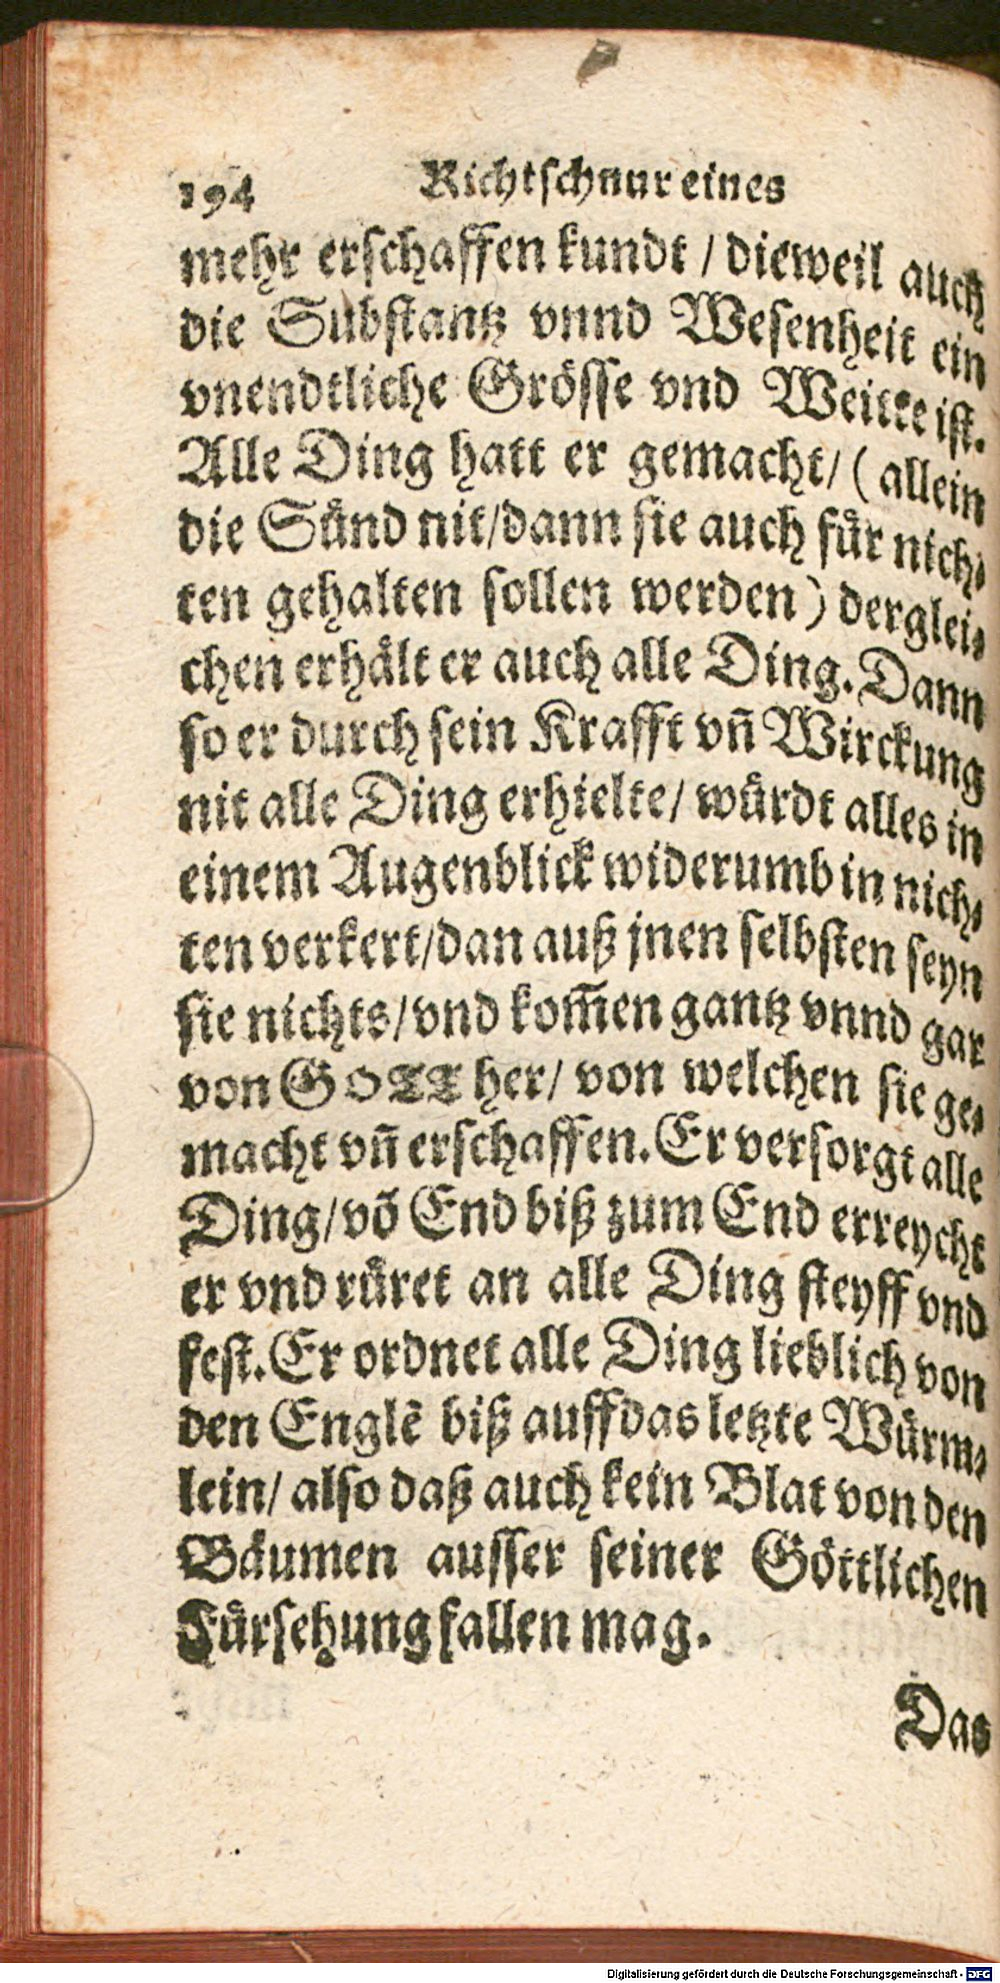 194 Richtschnur eines
mehr erschaffen kundt / dieweil auch
die Substantz vnnd Wesenheit ein
vnendtliche Grösse vnd Weitte ist.
Alle Ding hatt er gemacht/ ( allein
die Sünd nit/dann sie auch für nich⸗
ten gehalten sollen werden) derglei⸗
chen erhält er auch alle Ding. Dann
so er durch sein Krafft vn̄ Wirckung
nit alle Ding erhielte/ würdt alles in
einem Augenblick widerumb in nich⸗
ten verkert/dan auß jnen selbsten seyn
sie nichts/vnd kom̄en gantz vnnd gar
von GOTT her/ von welchen sie ge⸗
macht vn̄ erschaffen. Er versorgt alle
Ding/võ End biß zum End erreycht
er vnd rüret an alle Ding steyff vnd
fest. Er ordnet alle Ding lieblich von
den Englẽ biß auff das letzte Würm⸗
lein/ also daß auch kein Blat von den
Bäumen ausser seiner Göttlichen
Fürsehung fallen mag.
Das
Digitalisierung gefördert durch die Deutsche Forschungsgemeinschaft - DFG